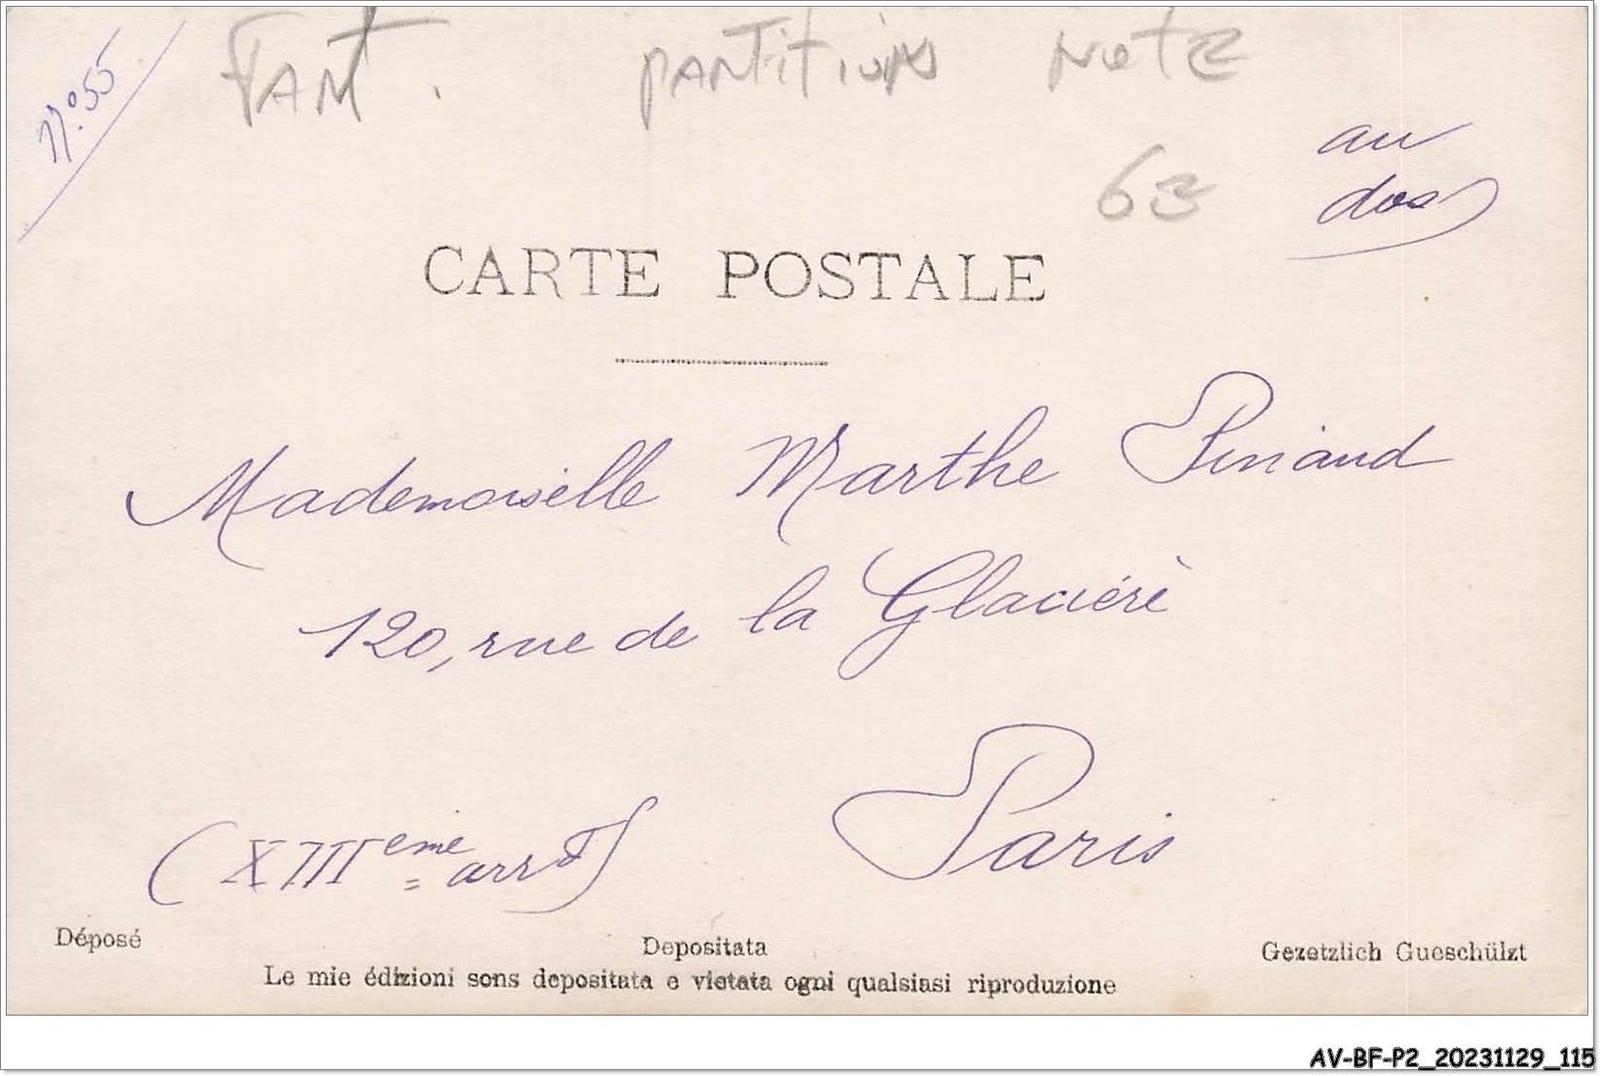 n° 55
FANT. PARTITION NOTE
63
au
dos
CARTE POSTALE
Mademoiselle Marthe Piniaud
120, rue de la Glacière
Paris
(XIIIeme arrdt)
Déposé
Depositata
Gezetzlich Gueschülzt
Le mie édizioni sons depositata e vietata ogni qualsiasi riproduzione
AV-BF-P2_20231129_115